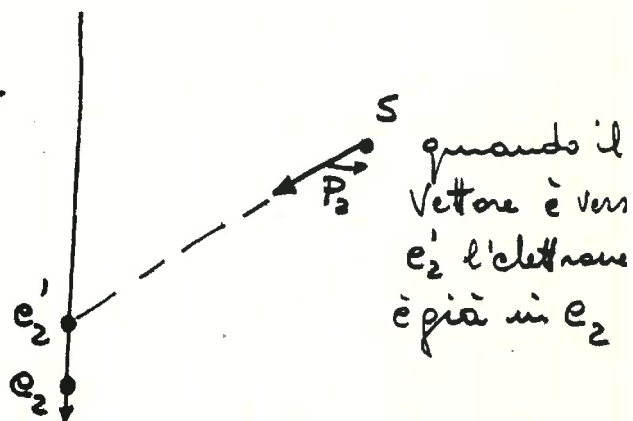 S
quando il
P₂
Vettore è vers
e₂' l'elettrone
è già in e₂
e₂'
e₂